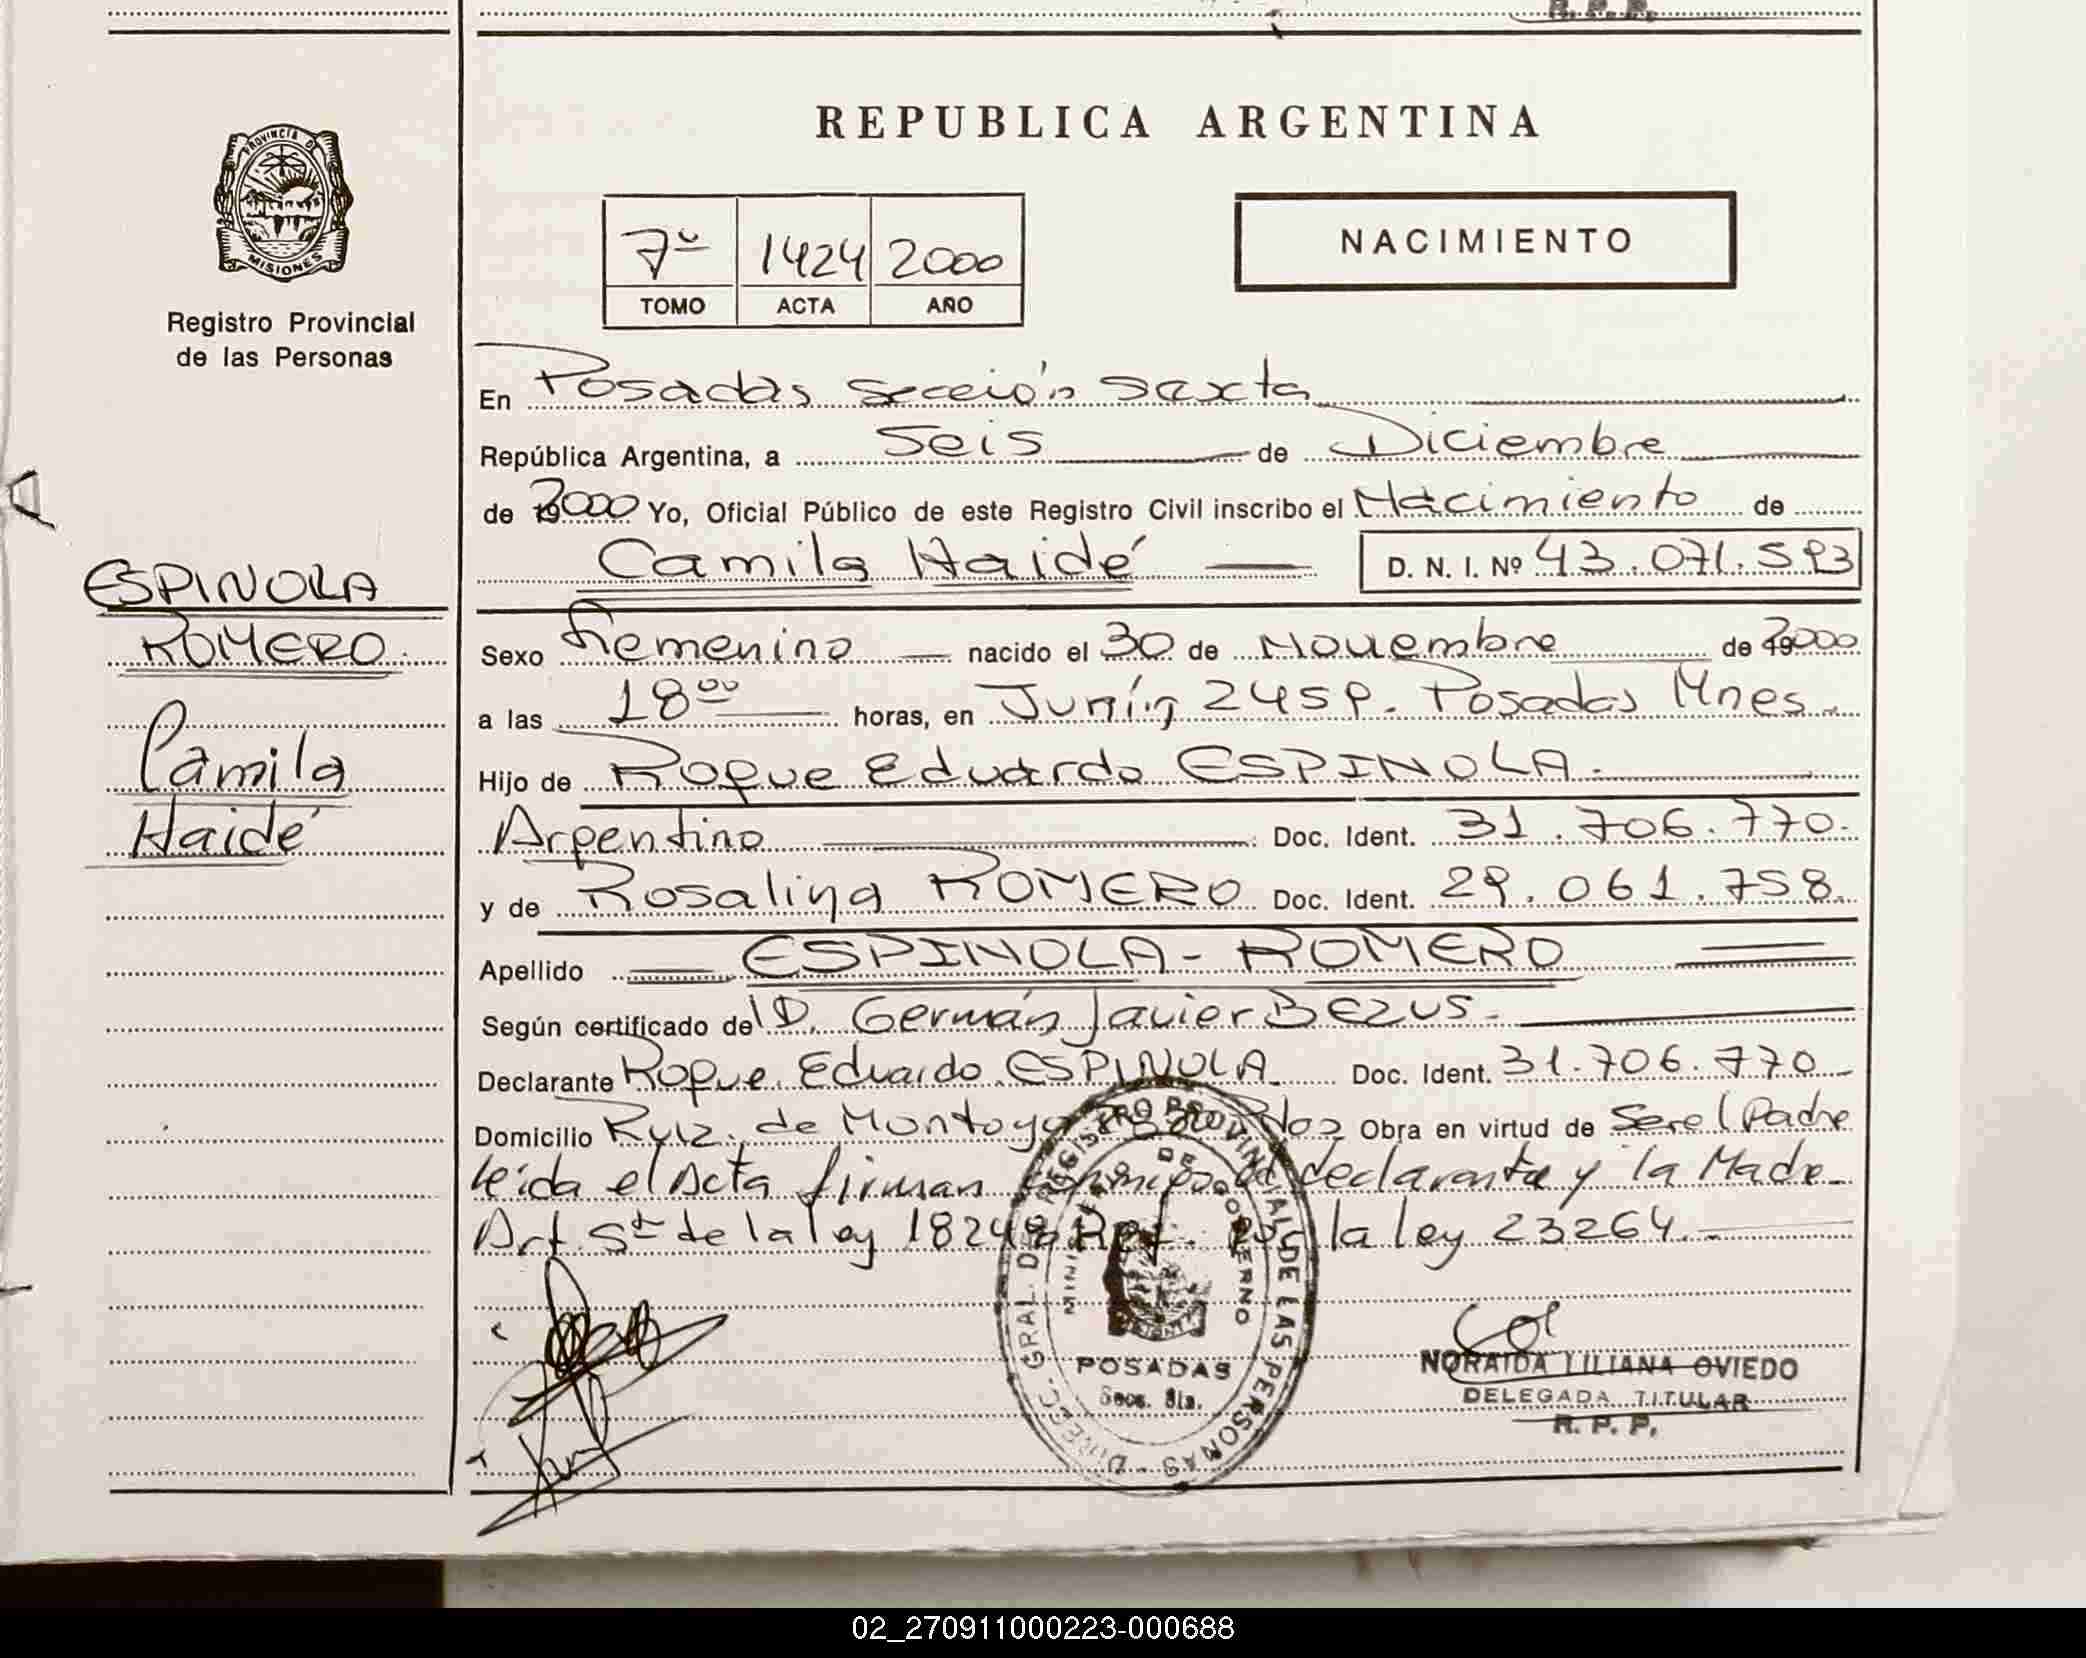 R. P. P.
PROVINCIA DE
MISIONES
Registro Provincial
de las Personas
ESPINOLA
ROMERO.
Camila
Haidé
REPUBLICA ARGENTINA
7º 1424 2000
TOMO ACTA AÑO
NACIMIENTO
En Posadas sección sexta
República Argentina, a Seis de Diciembre
de 2000 Yo, Oficial Público de este Registro Civil inscribo el Nacimiento de
Camila Haidé D. N. I. Nº 43.071.593
Sexo Femenino nacido el 30 de Noviembre de 2000
a las 18⁰⁰ horas, en Junín 2459. Posadas Mnes.
Hijo de Roque Eduardo ESPINOLA.
Argentino Doc. Ident. 31.706.770.
y de Rosalina ROMERO Doc. Ident. 29.061.758.
Apellido ESPINOLA - ROMERO
Según certificado de D. Germán Javier BEZUS.
Declarante Roque Eduardo ESPINOLA Doc. Ident. 31.706.770
Domicilio Ruiz de Montoya Pdas Obra en virtud de Ser el Padre
leída el Acta firman conmigo el declarante y la Madre.
Art. 5to de la ley 18248 Ref. por la ley 23264.
DIRECC. GRAL. DE REGISTRO PROVINCIAL DE LAS PERSONAS
MINISTERIO DE GOBIERNO
POSADAS
Secc. 6ta.
NORAIDA LILIANA OVIEDO
DELEGADA TITULAR
R. P. P.
02_270911000223-000688